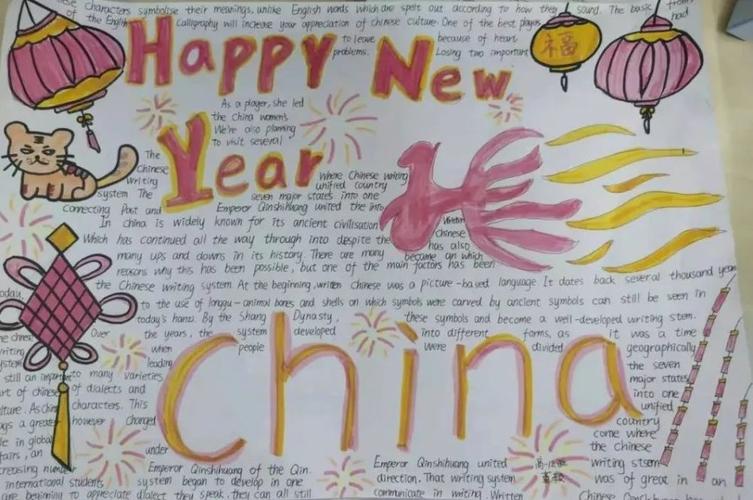 Characters symbolise their meanings, unlike English words which are spelt out according to how they sound. The basic
of the English Calligraphy will increase your appreciation of Chinese culture. One of the best players had
to leave because of heart
problems. Losing two important
福
Happy New
Year
As a player, she led
the China women's
We're also planning
to visit several
The
Chinese
writing
system The
Where Chinese writing
unified country
seven major states into one
Connecting Past and Emperor Qinshihuang united the into
In china is widely known for its ancient civilisation
Written
Chinese
Which has continued all the way through into despite the has also
many ups and downs in its history. There are many become an which
reasons why this has been possible, but one of the main factors has been
the Chinese writing system At the beginning, written Chinese was a picture-based language It dates back several thousand year
today, to the use of longgu-animal bones and shells on which symbols were carved by ancient symbols can still be seen in
today's hanzi. By the Shang Dynasty, these symbols and become a well-developed writing stem.
Over the years, the system developed into different forms, as it was a time
when people were divided geographically
leading the seven
still an important to many varieties major states
art of chinese of dialects and into one
characters. This unified
a greater however changed country
come where
in global the Chinese
under writing stem
was of great in an
China
Emperor Qinshihuang of the Qin. Emperor Qinshihuang united
international students system began to develop in one direction. That writing system
are beginning to appreciate dialect they speak, they can all still communicate in writing. Written